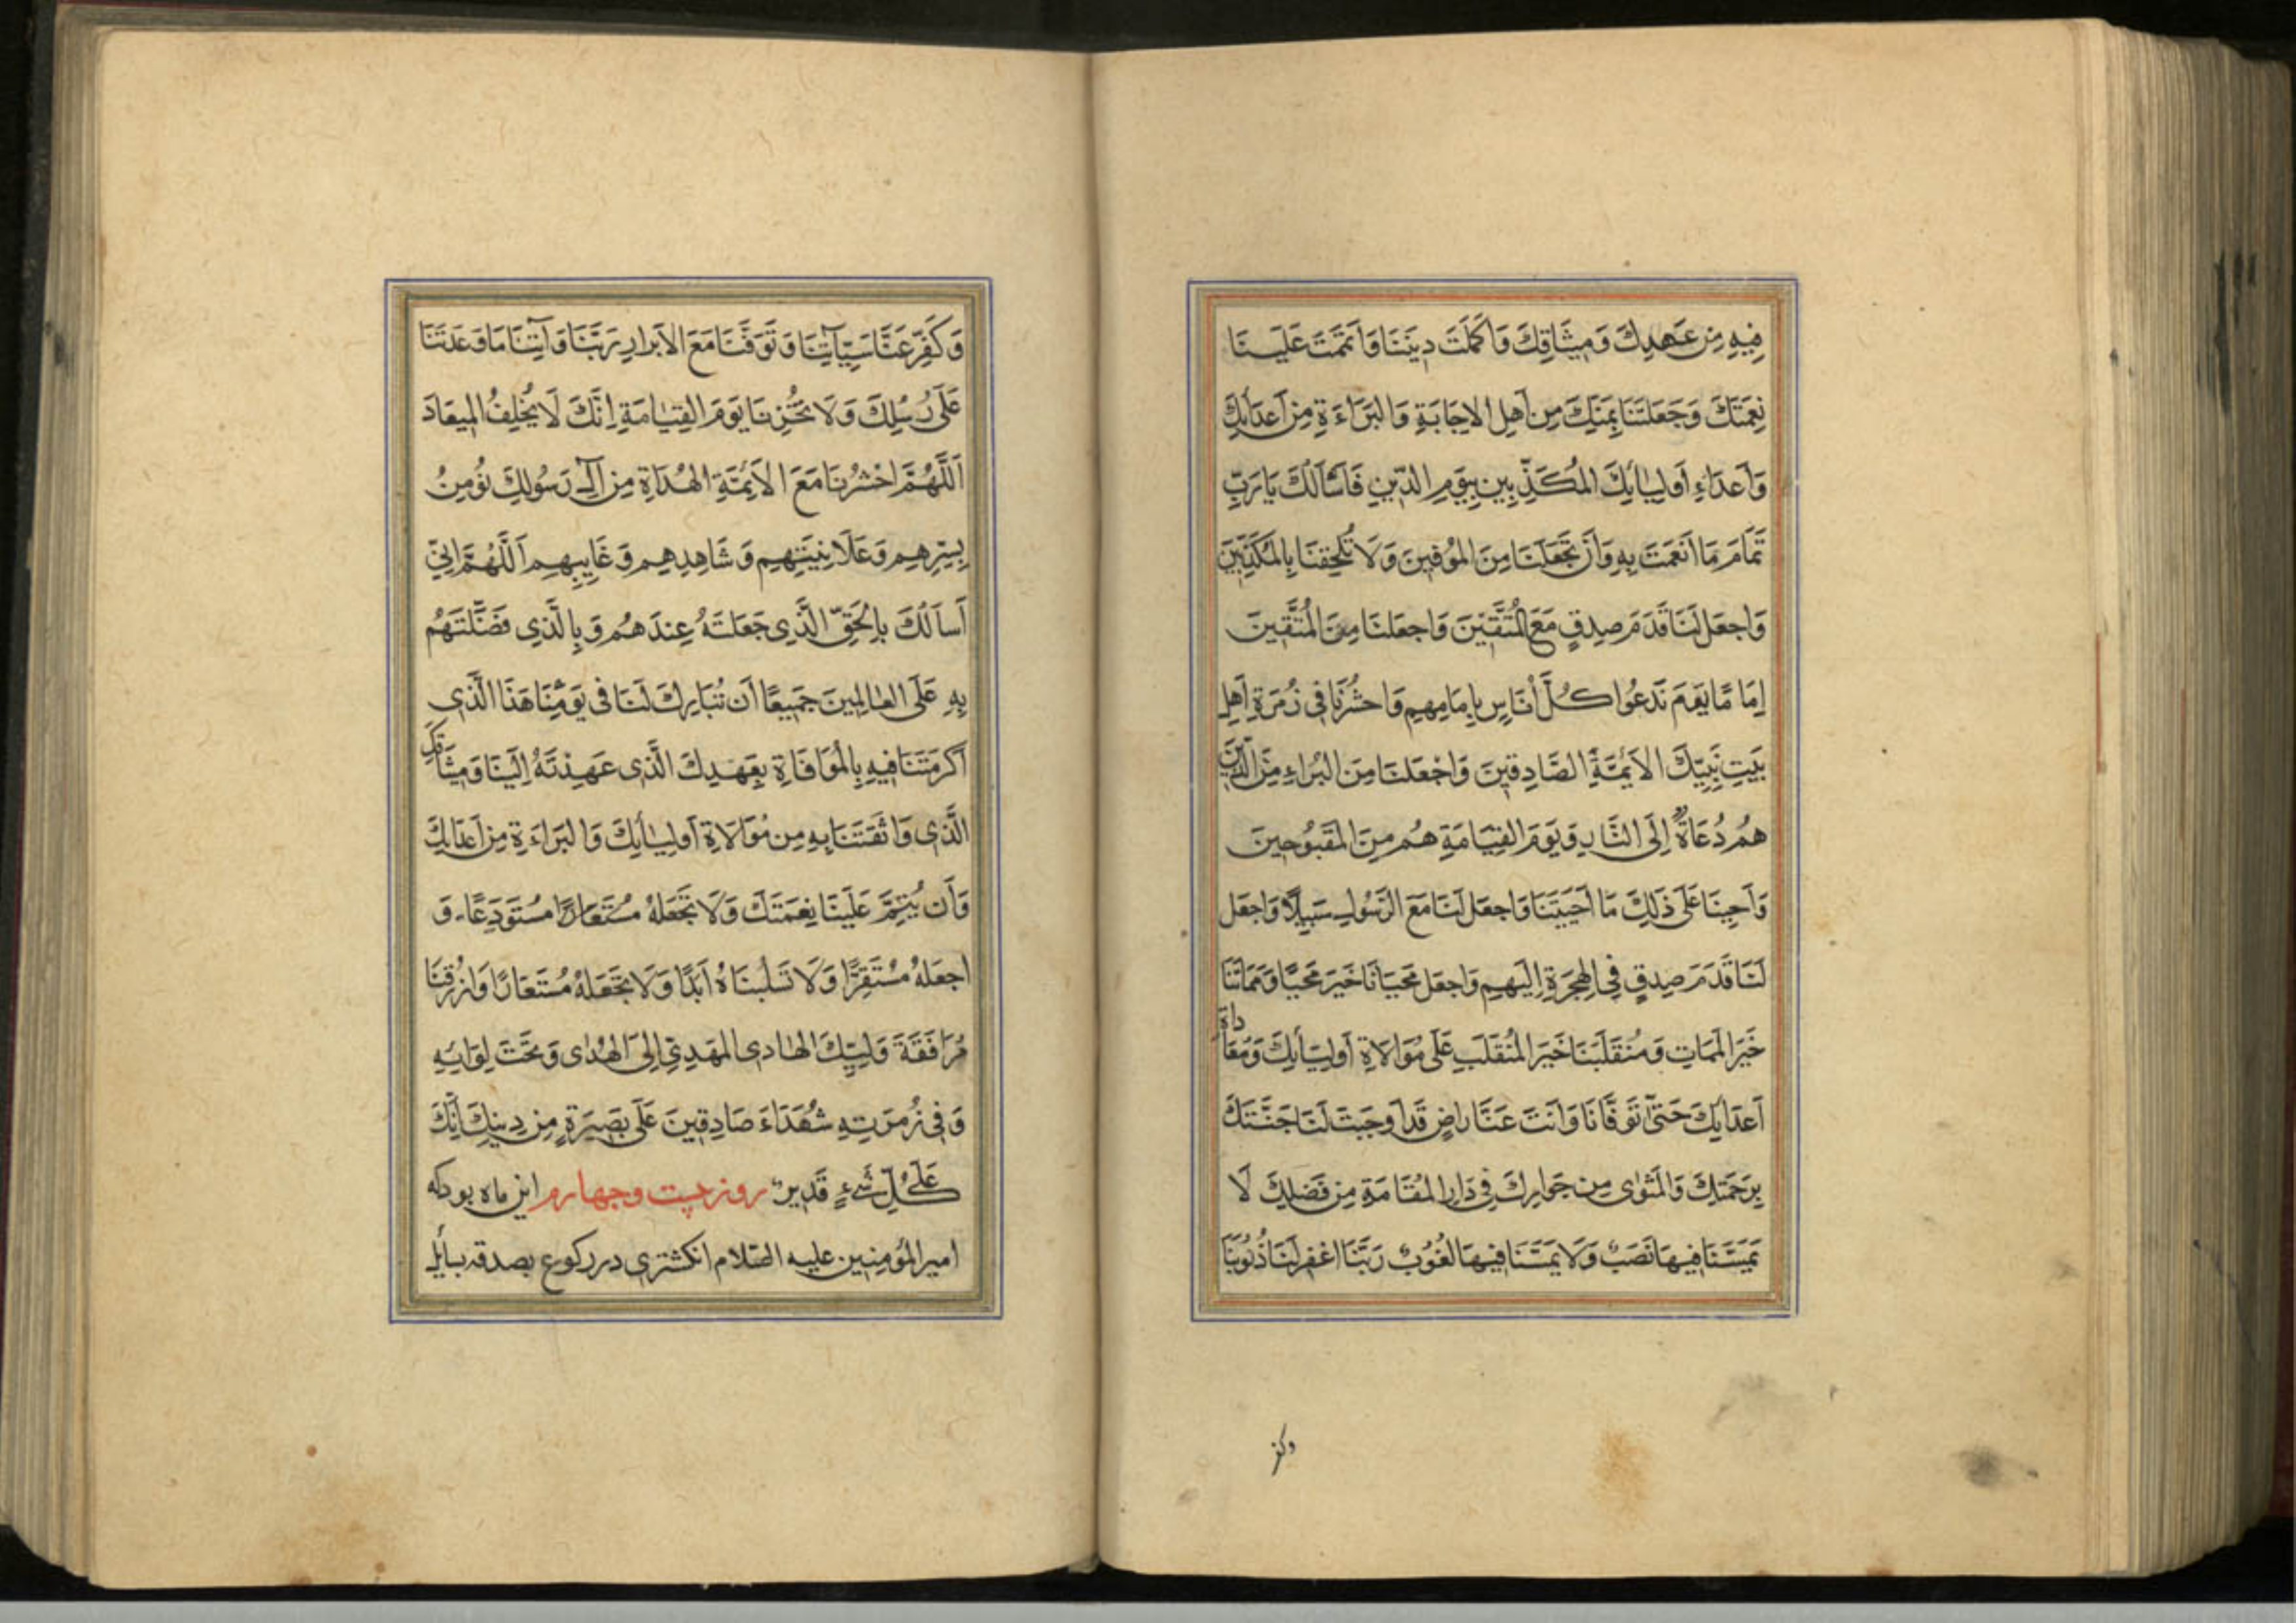 فِيهِ مِن عَهدِكَ وَمِيثَاقِكَ وَاَكمَلتَ دِينَنَا وَاَتمَمتَ عَلَيـنَا
نِعمَتَكَ وَجَعَلتَنَا بِمَنِّكَ مِن اَهلِ الاِجَابَةِ وَالبَرَاءَةِ مِن اَعدَائِكَ
وَاَعدَاءِ اَولِيَائِكَ المُكَذِّبِينَ بِيَومِ الدّينِ فَاَسْاَلُكَ يَا رَبِّ
تَمَامَ مَا اَنعَمتَ بِهِ وَاَن تَجعَلَنَا مِنَ المُوفِينَ وَلَا تُلحِقنَا بِالمُكَذِّبِينَ
وَاجعَل لَنَا قَدَمَ صِدقٍ مَعَ المُتَّقِينَ وَاجعَلنَا مِنَ المُتَّقِينَ
اِمَامًا يَومَ نَدعُوا كُلَّ اُنَاسٍ بِاِمَامِهِم وَاحشُرنَا فِي زُمرَةِ اَهلِ
بَيتِ نَبِيِّكَ الاَئِمَّةِ الصَّادِقِينَ وَاجْعَلنَا مِنَ البُرَاءِ مِنَ الَّذِينَ
هُم دُعَاةٌ اِلَى النَّارِ وَيَومَ القِيَامَةِ هُم مِنَ المَقبُوحِينَ
وَاَحيِنَا عَلَى ذَلِكَ مَا اَحيَيتَنَا وَاجعَل لَنَا مَعَ الرَّسُولِ سَبِيلًا وَاجعَل
لَنَا قَدَمَ صِدقٍ فِي الهِجرَةِ اِلَيهِم وَاجعَل مَحيَانَا خَيرَ مَحيًا وَمَمَاتَنَا
خَيرَ المَمَاتِ وَمُنقَلَبَنَا خَيرَ المُنقَلَبِ عَلَى مُوَالَاةِ اَولِيَائِكَ وَمُعَاداةِ
اَعدَائِكَ حَتّى تَوَفَّانَا وَاَنتَ عَنَّا رَاضٍ قَد اَوجَبتَ لَنَا جَنَّتَكَ
بِرَحمَتِكَ وَالمَثوٰى مِن جَوَارِكَ فِي دَارِ المُقَامَةِ مِن فَضلِكَ لَا
يَمَسُّنَا فِيهَا نَصَبٌ وَلَا يَمَسُّنَا فِيهَا لُغُوبٌ رَبَّنَا اغفِر لَنَا ذُنُوبَنَا
وكفر
وَكَفِّر عَنَّا سَيِّاٰتِنَا وَتَوَفَّنَا مَعَ الاَبرَارِ رَبَّنَا وَآتِنَا مَا وَعَدتَنَا
عَلَى رُسُلِكَ وَلَا تُخزِنَا يَومَ القِيٰامَةِ اِنَّكَ لَا تُخلِفُ المِيعَادَ
اَللَّهُمَّ احْشُرنَا مَعَ الاَئِمَّةِ الهُدَاةِ مِن آلِ رَسُولِكَ نُؤمِنُ
بِسِرِّهِم وَعَلَانِيَتِهِم وَشَاهِدِهِم وَغَايِبِهِم اَللَّهُمَّ اِنِّي
اَسأَلُكَ بِالحَقِّ الَّذِي جَعَلتَهُ عِندَهُم وَبِالَّذِي فَضَّلتَهُم
بِهِ عَلَى العٰالَمِينَ جَمِيعًا اَن تُبَارِكَ لَنَا فِي يَومِنَا هَذَا الَّذِي
اَكرَمتَنَا فِيهِ بِالمُوَافَاةِ بِعَهدِكَ الَّذِي عَهِدْتَهُ اِلَينَا وَمِيثَاقِكَ
الَّذِي وَاثَقتَنَا بِهِ مِن مُوَالَاةِ اَولِيٰائِكَ وَالبَرَاءَةِ مِن اَعدَائِكَ
وَاَن تُتِمَّ عَلَينَا نِعمَتَكَ وَلَا تَجعَلهُ مُستَعَارًا مُستَودَعًا وَ
اجعَلهُ مُستَقِرًّا وَلَا تَسلُبنَاهُ اَبَدًا وَلَا تَجعَلهُ مُستَعَارًا وَارزُقنَا
مُرَافَقَةَ وَلِيِّكَ الهٰادِي المَهدِيِّ اِلَى الهُدٰى وَتَحتَ لِوَائِهِ
وَفِي زُمرَتِهِ شُهَدَاءَ صَادِقِينَ عَلَى بَصِيرَةٍ مِن دِينِكَ اِنَّكَ
عَلَى كُلِّ شَيءٍ قَدِيرٌ روز بیست وچهارم این ماه بود که
امیرالمؤمنین علیه السّلام انکشتری در رکوع بصدقه بسایل